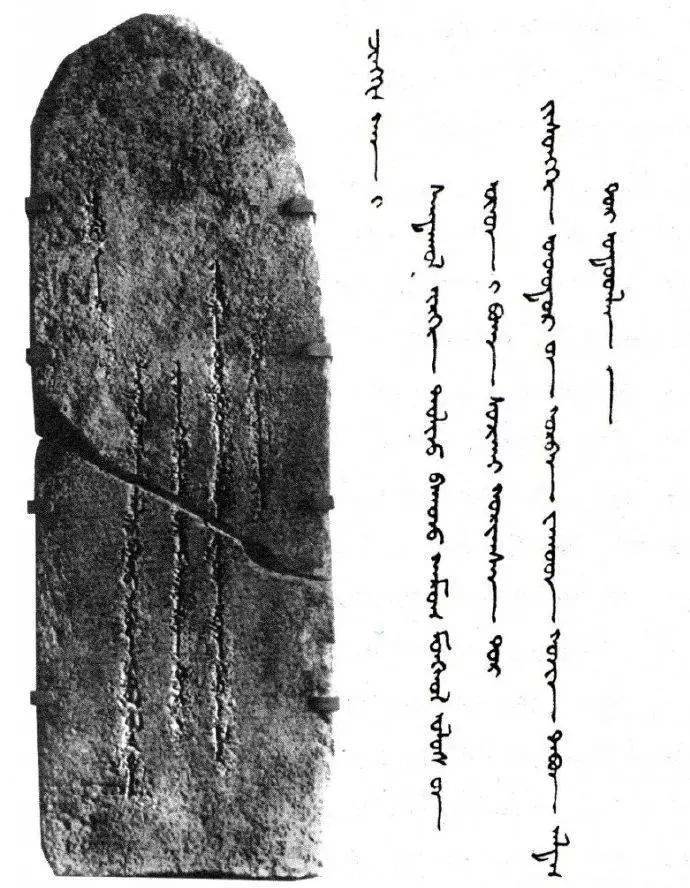 ᠴᠢᠩᠭᠢᠰ ᠬᠠᠨ ᠢ
ᠰᠠᠷᠲᠠᠭᠤᠯ ᠢᠷᠭᠡ ᠳᠠᠭᠤᠯᠢᠵᠤ ᠪᠠᠭᠤᠵᠤ ᠬᠠᠮᠤᠭ ᠮᠣᠩᠭᠣᠯ ᠤᠯᠤᠰ ᠤᠨ
ᠨᠣᠶᠠᠳ ᠢ ᠪᠤᠬᠠ ᠰᠣᠴᠢᠭᠠᠢ ᠬᠤᠷᠢᠭᠰᠠᠨ ᠳᠤᠷ
ᠶᠢᠰᠦᠩᠭᠡ ᠣᠨᠲᠤᠳᠤᠷᠤᠨ ᠭᠤᠷᠪᠠᠨ ᠵᠠᠭᠤᠳ ᠭᠤᠴᠢᠨ ᠲᠠᠪᠤᠨ ᠠᠯᠳᠠᠰ
ᠲᠤᠷ ᠣᠨᠲᠤᠳᠤᠯᠠᠭ᠎ᠠ